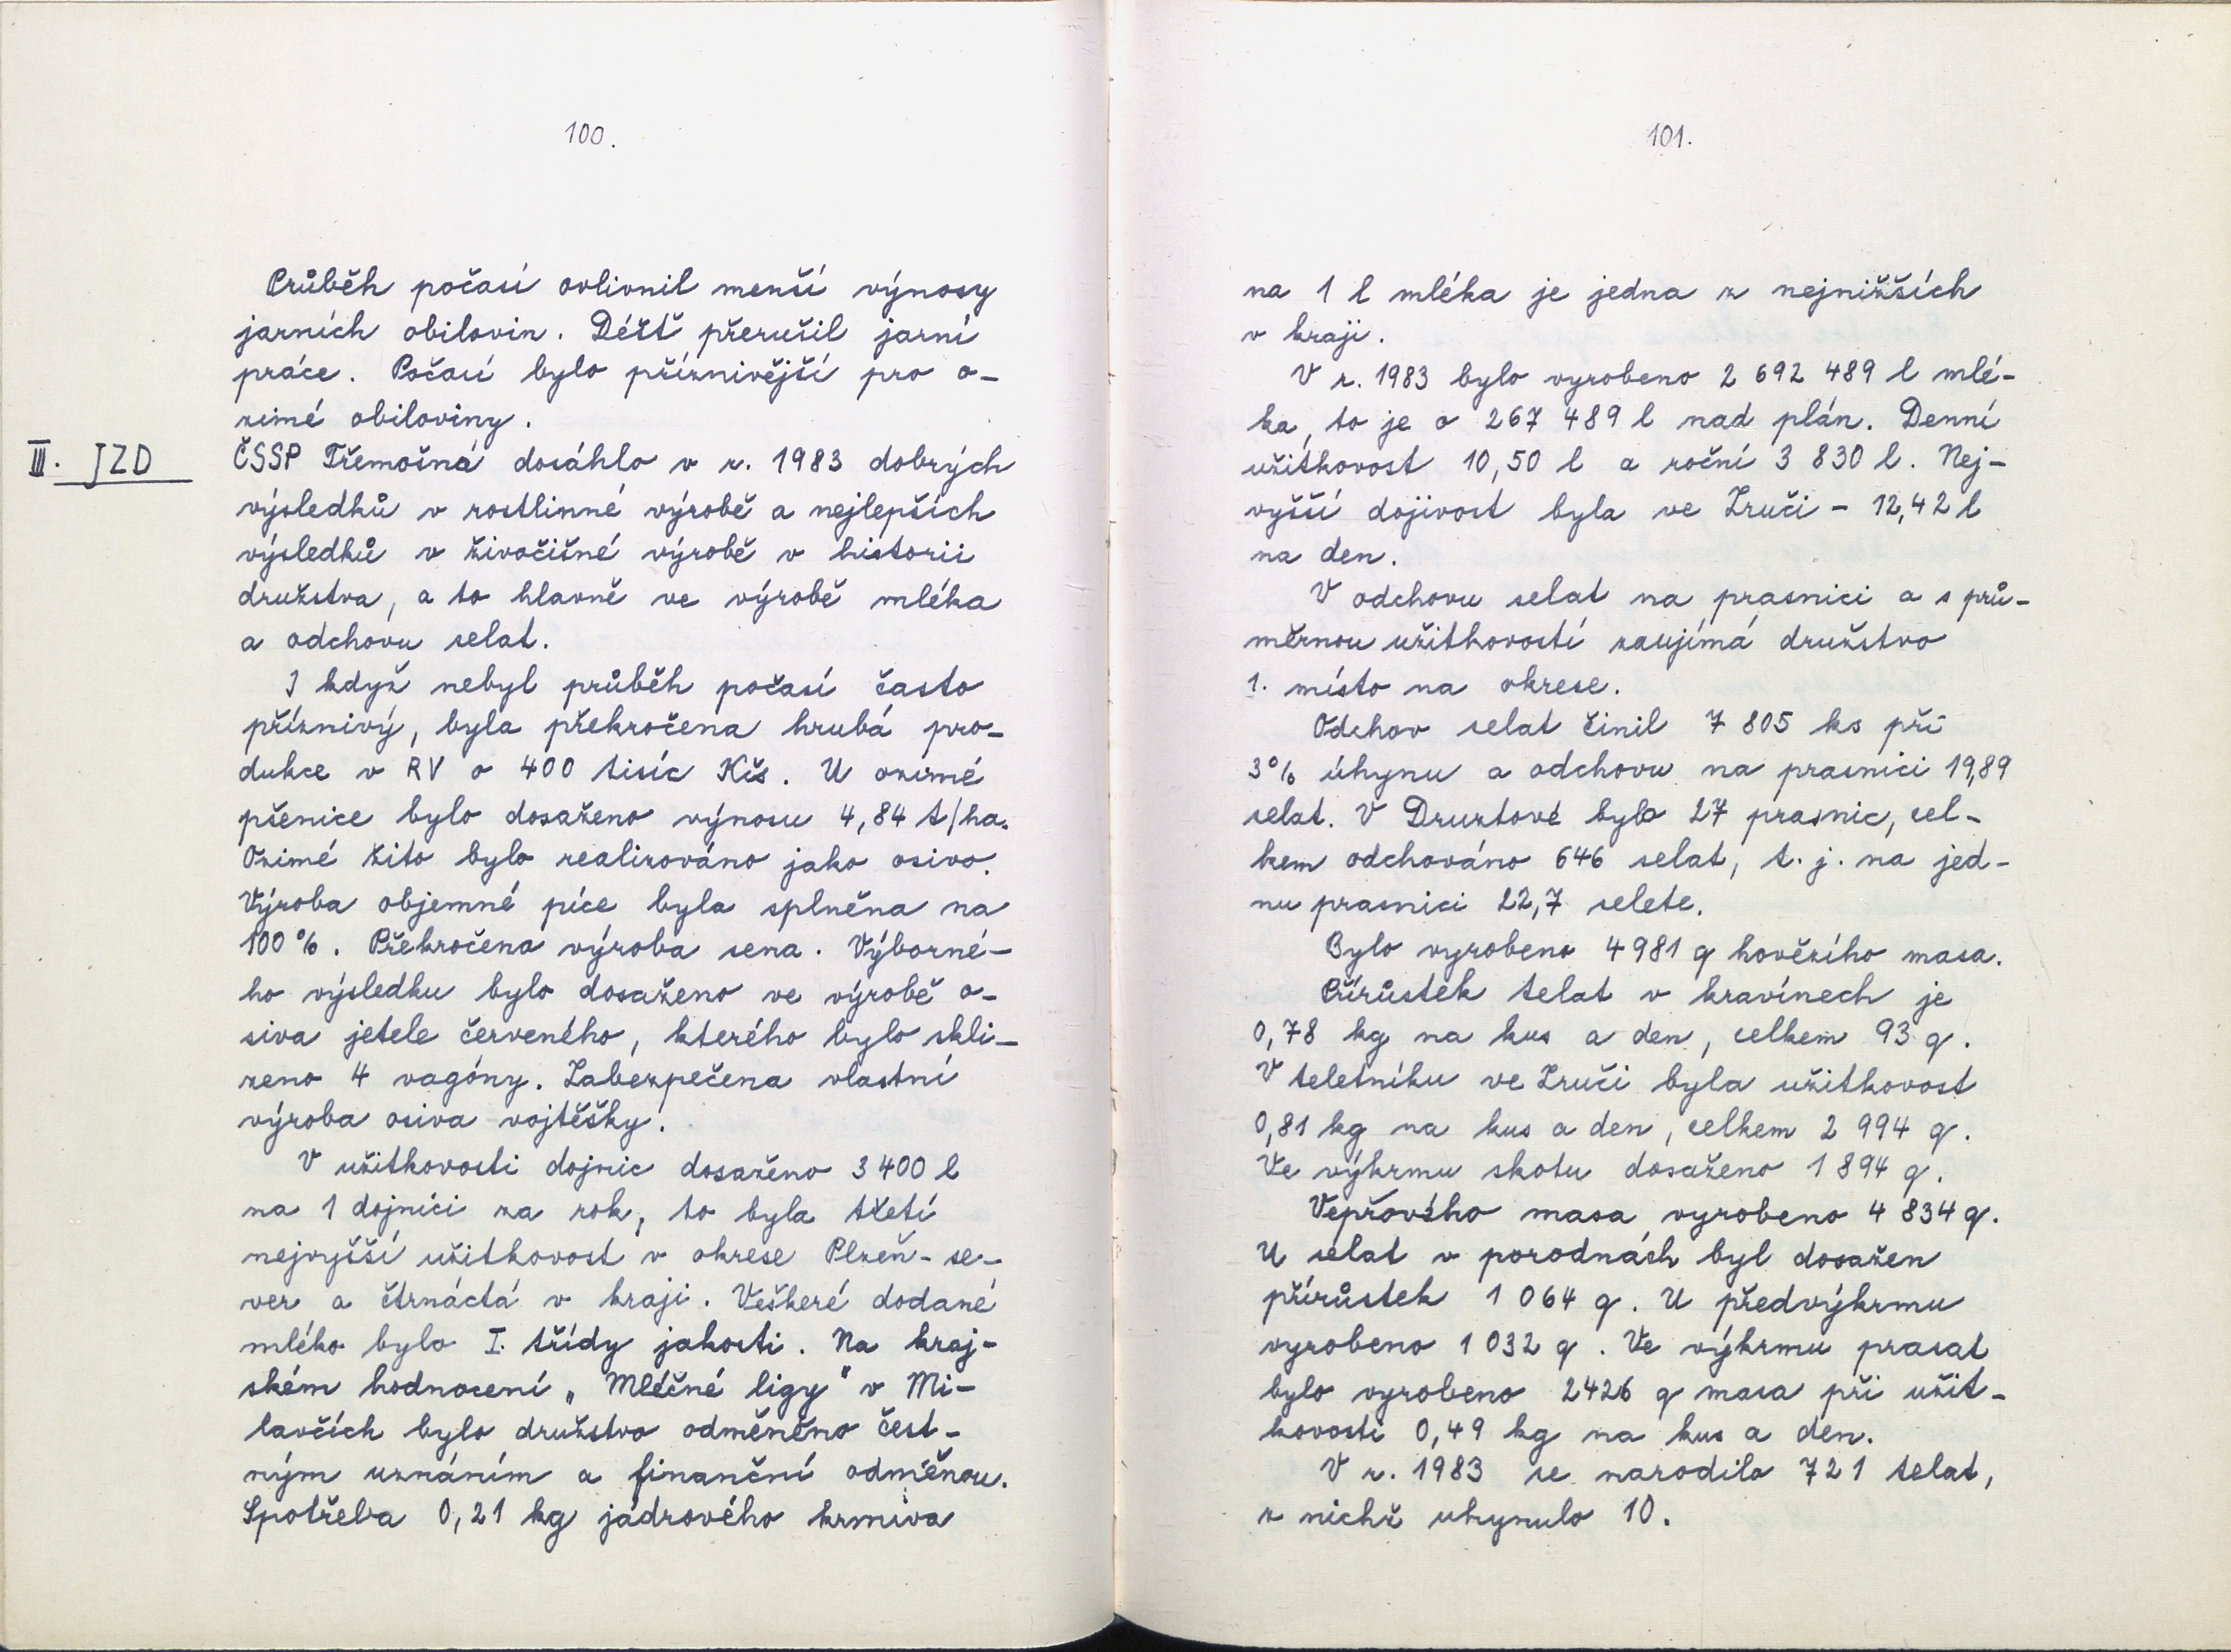 100.
Průběh počasí ovlivnil menší výnosy
jarních obilovin. Déšť přerušil jarní
práce. Počasí bylo příznivější pro o-
zimé obiloviny.
III. JZD
ČSSP Třemošná dosáhlo v r. 1983 dobrých
výsledků v rostlinné výrobě a nejlepších
výsledků v živočišné výrobě v historii
družstva, a to hlavně ve výrobě mléka
a odchovu selat.
I když nebyl průběh počasí často
příznivý, byla překročena hrubá pro-
dukce v RV o 400 tisíc Kčs. U ozimé
pšenice bylo dosaženo výnosu 4,84 t/ha.
Ozimé žito bylo realizováno jako osivo.
Výroba objemné píce byla splněna na
100%. Překročena výroba sena. Výborné-
ho výsledku bylo dosaženo ve výrobě o-
siva jetele červeného, kterého bylo skli-
zeno 4 vagóny. Zabezpečena vlastní
výroba osiva vojtěšky.
V užitkovosti dojnic dosaženo 3 400 l
na 1 dojnici za rok, to byla třetí
nejvyšší užitkovost v okrese Plzeň-se-
ver a čtrnáctá v kraji. Veškeré dodané
mléko bylo I. třídy jakosti. Na kraj-
ském hodnocení „Mléčné ligy" v Mi-
lavčích bylo družstvo odměněno čest-
ným uznáním a finanční odměnou.
Spotřeba 0,21 kg jádrového krmiva
101.
na 1 l mléka je jedna z nejnižších
v kraji.
V r. 1983 bylo vyrobeno 2 692 489 l mlé-
ka, to je o 267 489 l nad plán. Denní
užitkovost 10,50 l a roční 3 830 l. Nej-
vyšší dojivost byla ve Zruči - 12,42 l
na den.
V odchovu selat na prasnici a s prů-
měrnou užitkovostí zaujímá družstvo
1. místo na okrese.
Odchov selat činil 7 805 ks při
3% úhynu a odchovu na prasnici 19,89
selat. V Druztové bylo 27 prasnic, cel-
kem odchováno 646 selat, t. j. na jed-
nu prasnici 22,7 selete.
Bylo vyrobeno 4 981 q hovězího masa.
Přírůstek telat v kravínech je
0,78 kg na kus a den, celkem 93 q.
V teletníku ve Zruči byla užitkovost
0,81 kg na kus a den, celkem 2 994 q.
Ve výkrmu skotu dosaženo 1 894 q.
Vepřového masa vyrobeno 4 834 q.
U selat v porodnách byl dosažen
přírůstek 1 064 q. U předvýkrmu
vyrobeno 1 032 q. Ve výkrmu prasat
bylo vyrobeno 2426 q masa při užit-
kovosti 0,49 kg na kus a den.
V r. 1983 se narodilo 721 telat,
z nichž uhynulo 10.